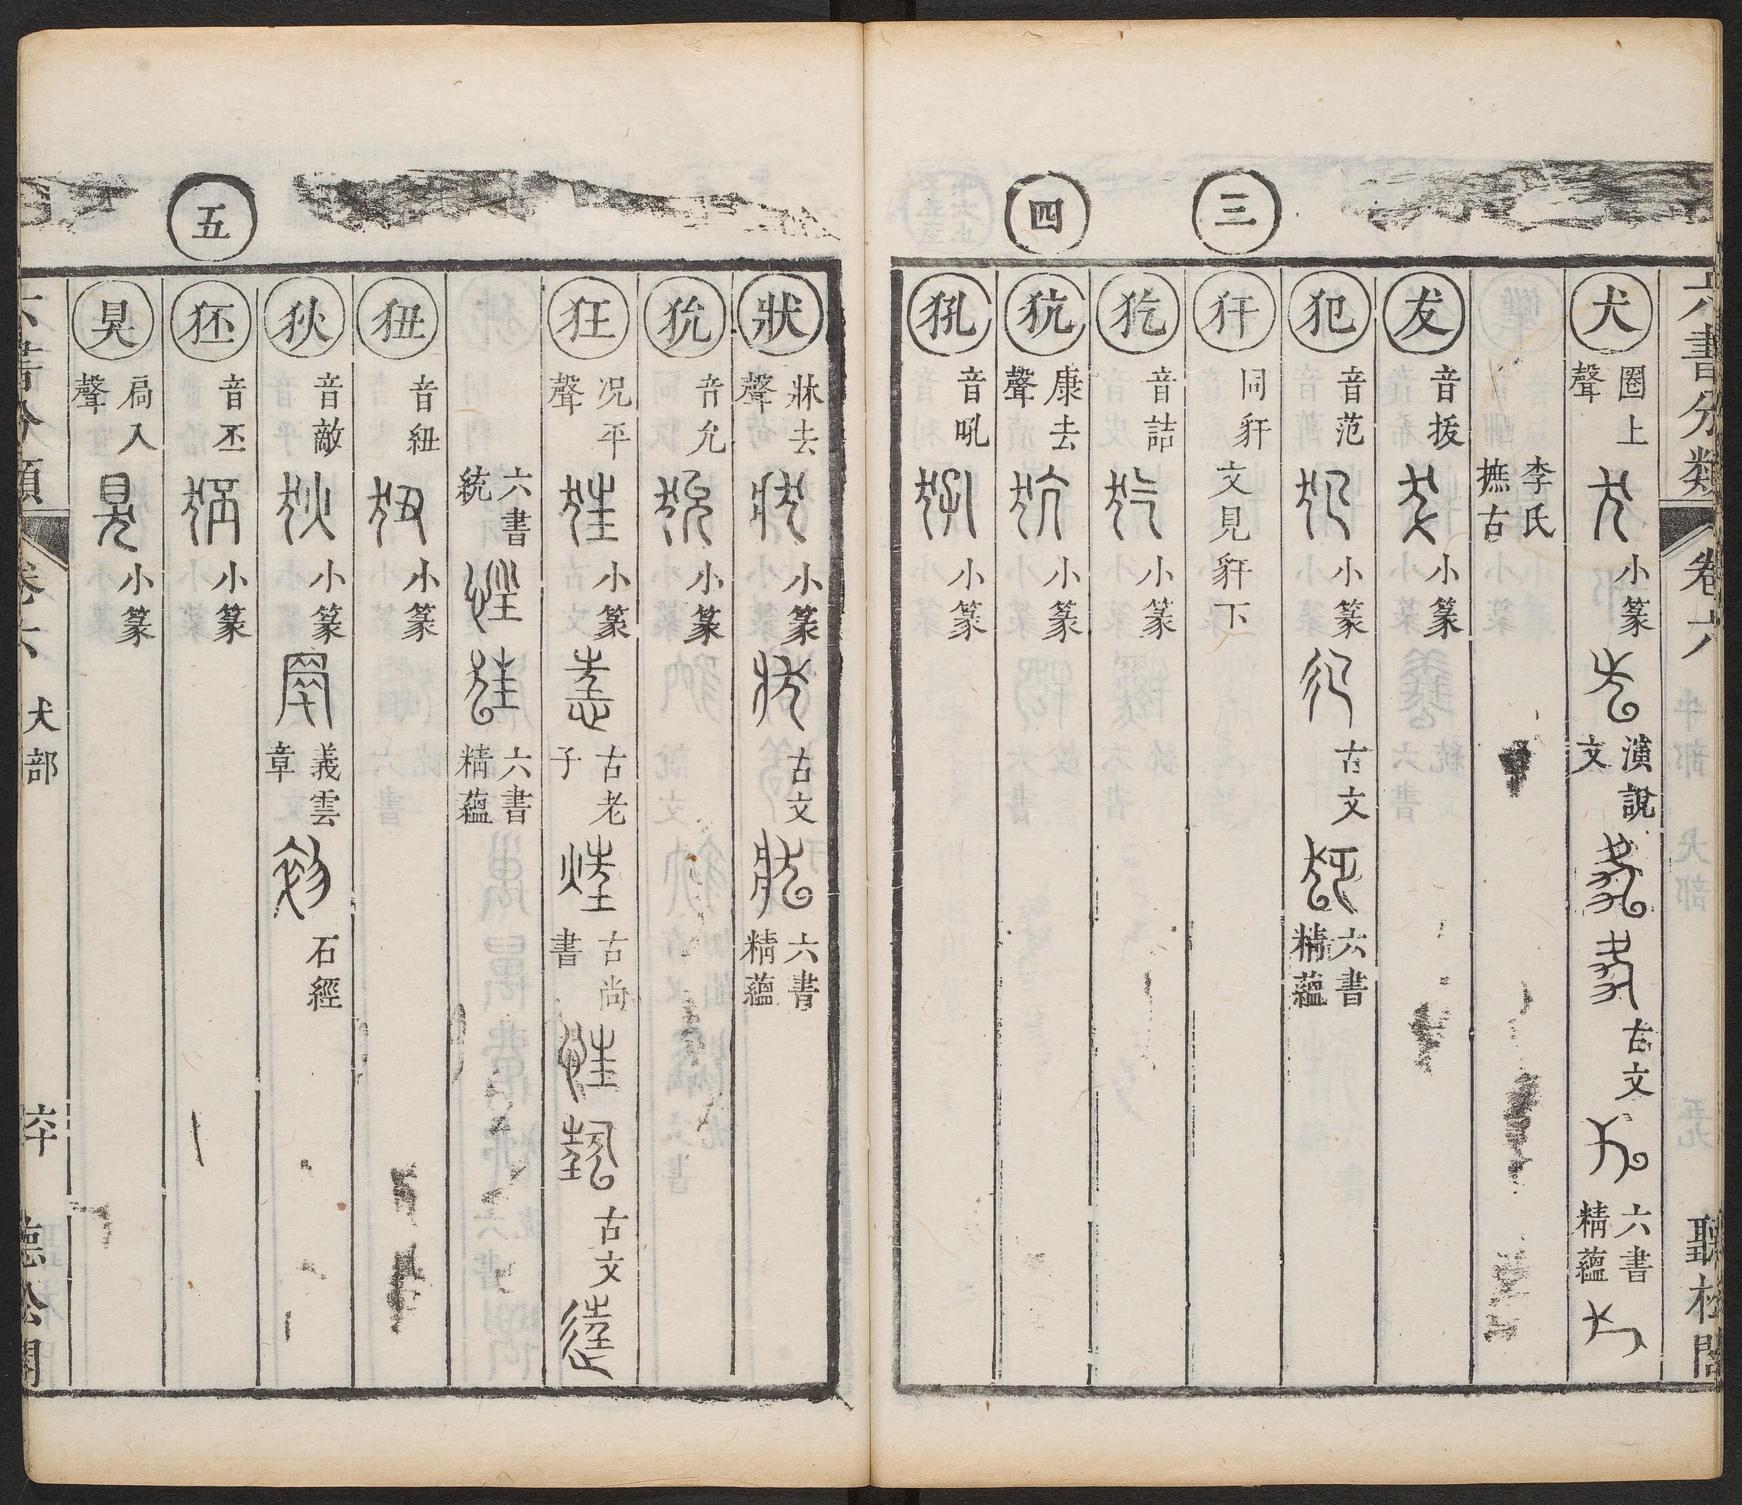 六書分類
卷六
聽松閣
三
四
犬 圈上聲 小篆 演說文 古文 六書精蘊
李氏摭古
犮 音拔 小篆
犯 音范 小篆 古文 六書精蘊
犴 同豻 文見豻下
犵 音詰 小篆
犺 康去聲 小篆
犼 音吼 小篆
五
狀 牀去聲 小篆 古文 六書精蘊
狁 音允 小篆
狂 況平聲 小篆 古老子 古尚書 古文
六書統 六書精蘊
狃 音紐 小篆
狄 音敵 小篆 義雲章 石經
狉 音丕 小篆
狊 扃入聲 小篆
六書分類
卷六 犬部